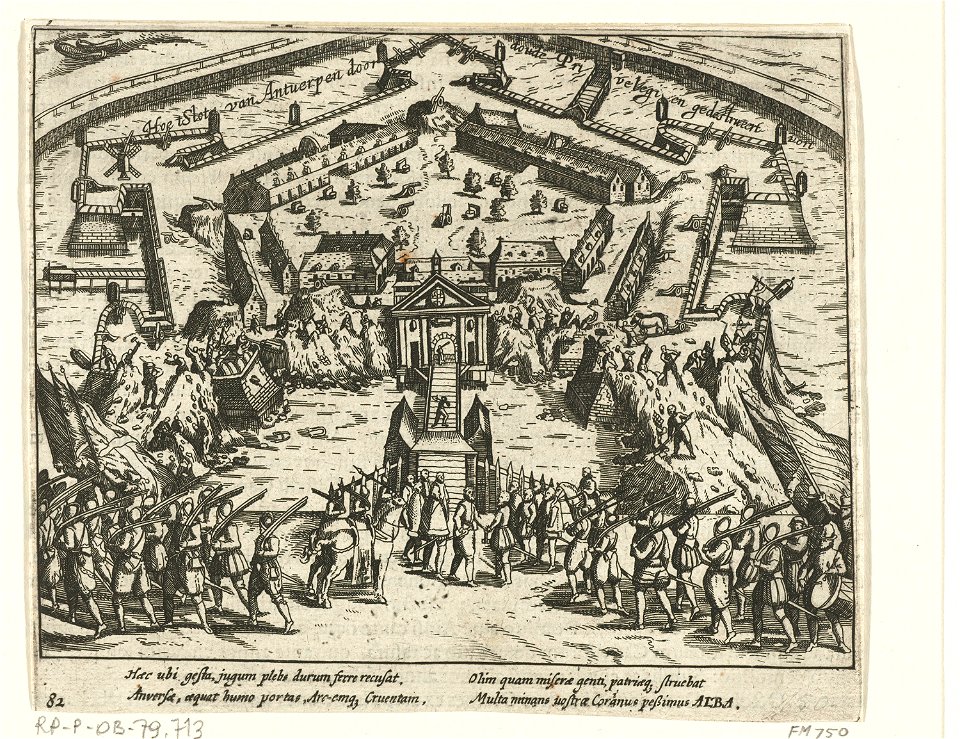 Hoe t'Slot van Antwerpen door doude Privelegien gedestrueert wort
Hæc ubi gesta, jugum plebs durum ferre recusat,
Anversæ, æquat humo portas, Arcemq, Cruentam,
Olim quam miseræ genti, patriæq, struebat
Multa minans vostræ pessimus ALBA.
82
RP-P-OB-79.713
FM 750